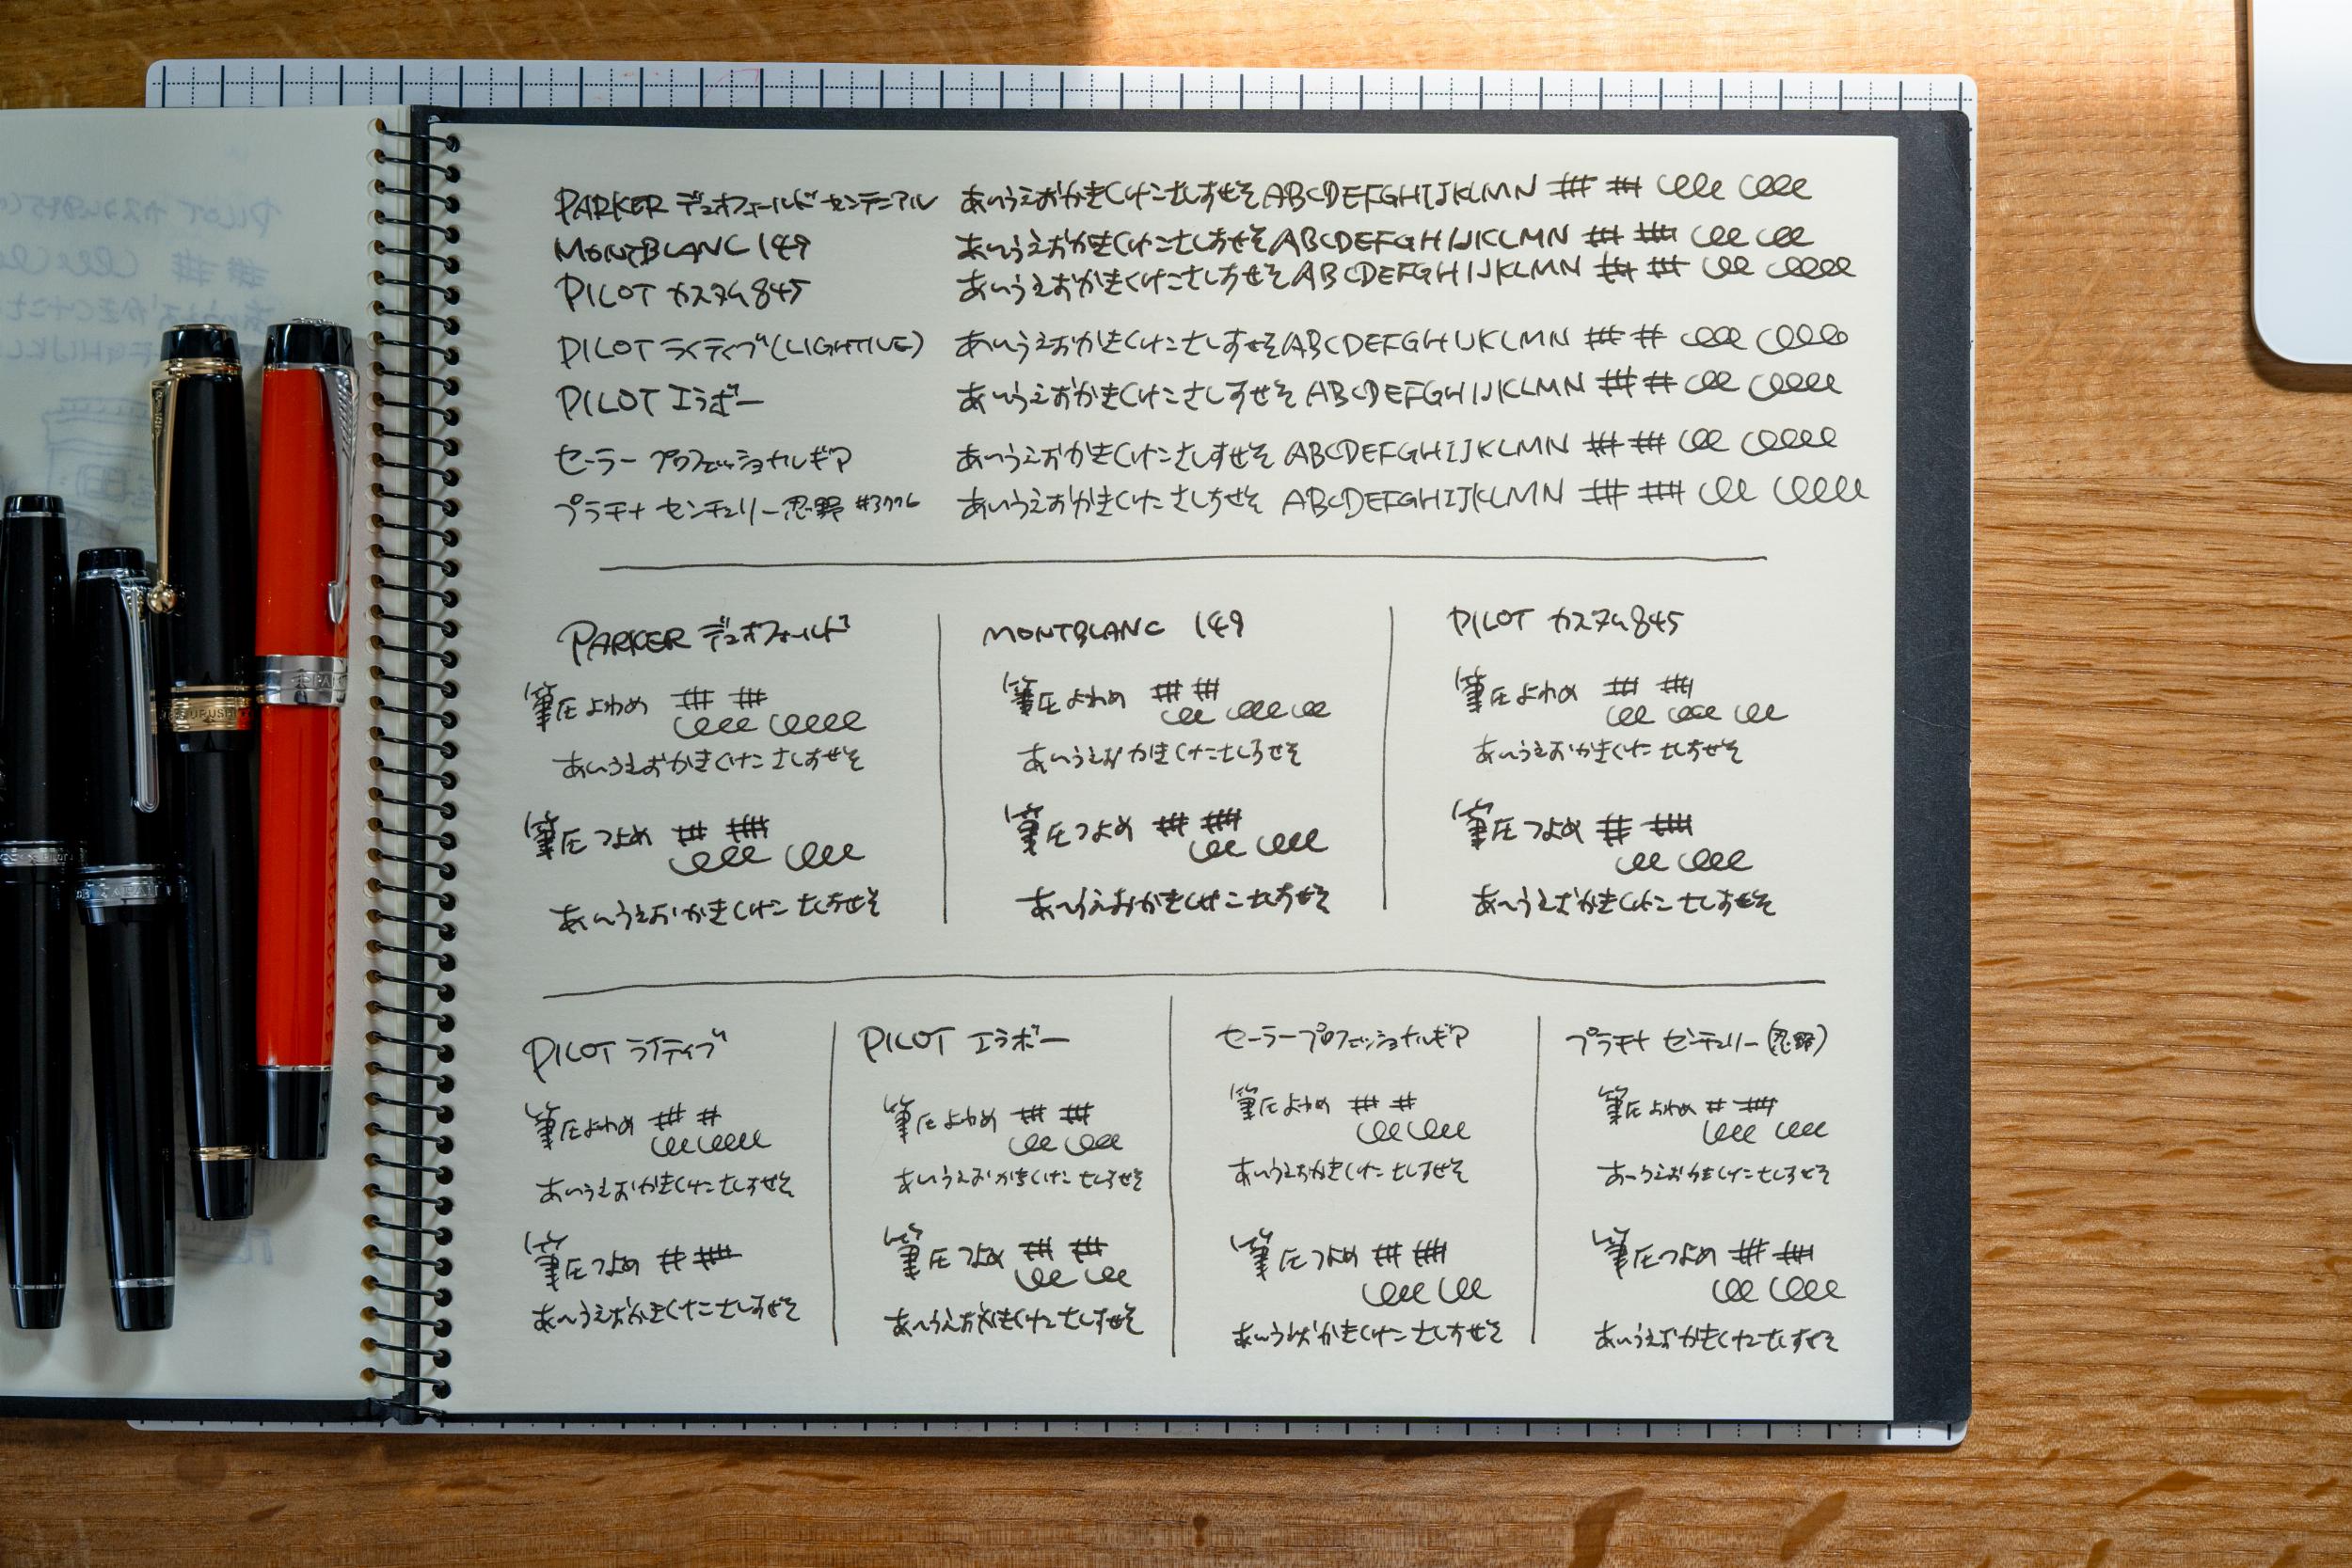 PARKER デュオフォールド センテニアル あいうえおかきくけこさしすせそ ABCDEFGHIJKLMN
MONTBLANC 149 あいうえおかきくけこさしすせそ ABCDEFGHIJKLMN
PILOT カスタム845 あいうえおかきくけこさしすせそ ABCDEFGHIJKLMN
PILOT ライティブ(LIGHTIVE) あいうえおかきくけこさしすせそ ABCDEFGHIJKLMN
PILOT エラボー あいうえおかきくけこさしすせそ ABCDEFGHIJKLMN
セーラー プロフェッショナルギア あいうえおかきくけこさしすせそ ABCDEFGHIJKLMN
プラチナ センチュリー忍野 #3776 あいうえおかきくけこ さしすせそ ABCDEFGHIJKLMN
PARKER デュオフォールド
筆圧よわめ
あいうえおかきくけこ さしすせそ
筆圧つよめ
あいうえおかきくけこ さしすせそ
MONTBLANC 149
筆圧よわめ
あいうえおかきくけこさしすせそ
筆圧つよめ
あいうえおかきくけこ さしすせそ
PILOT カスタム845
筆圧よわめ
あいうえおかきくけこ さしすせそ
筆圧つよめ
あいうえおかきくけこ さしすせそ
PILOT ライティブ
筆圧よわめ
あいうえおかきくけこ さしすせそ
筆圧つよめ
あいうえおかきくけこさしすせそ
PILOT エラボー
筆圧よわめ
あいうえおかきくけこ さしすせそ
筆圧つよめ
あいうえおかきくけこさしすせそ
セーラープロフェッショナルギア
筆圧よわめ
あいうえおかきくけこ さしすせそ
筆圧つよめ
あいうえおかきくけこ さしすせそ
プラチナ センチュリー(忍野)
筆圧よわめ
あいうえおかきくけこさしすせそ
筆圧つよめ
あいうえおかきくけこさしすせそ